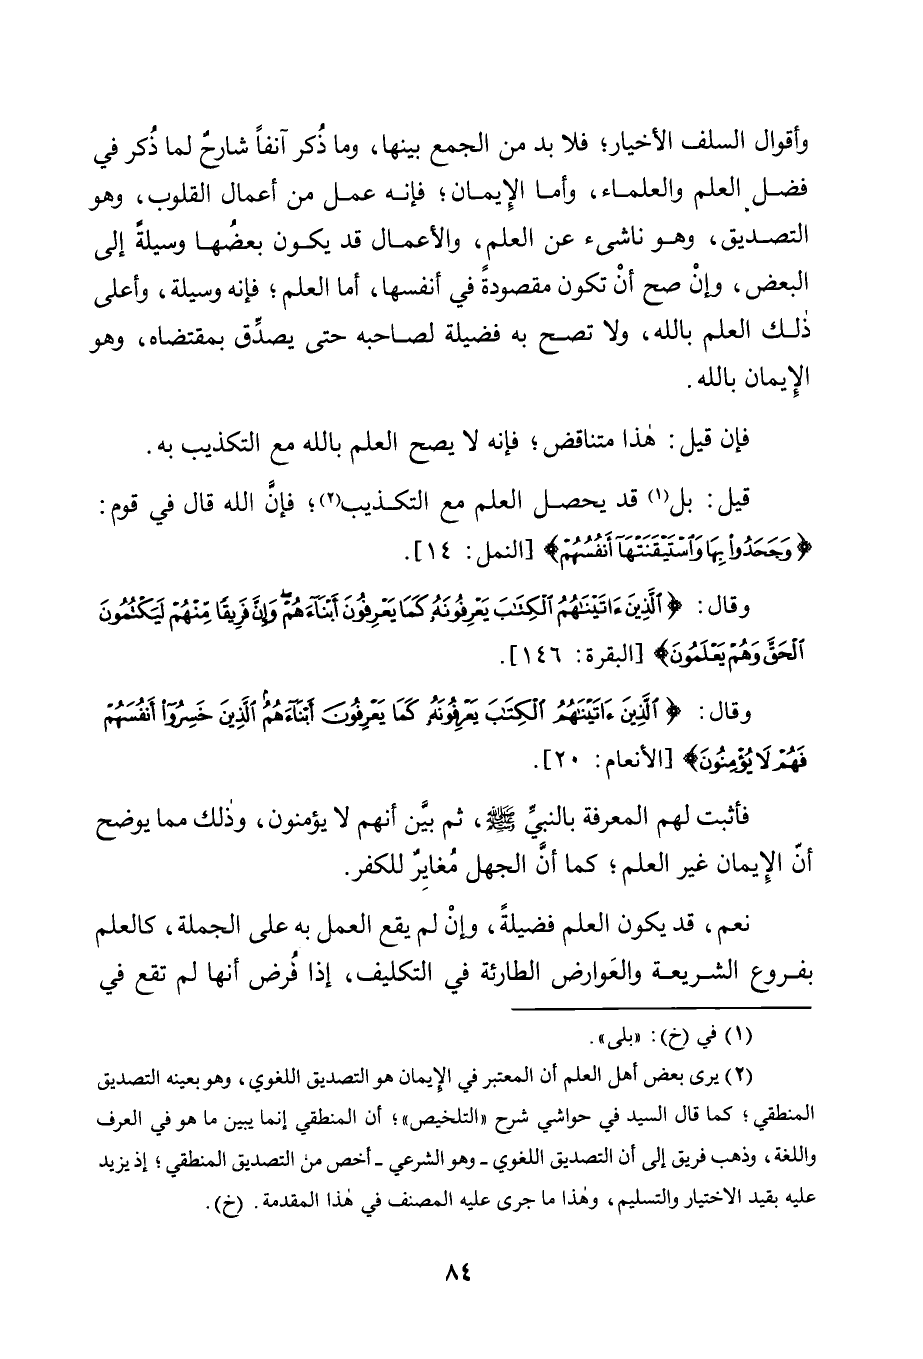 وأقوال السلف الأخيار؛ فلا بد من الجمع بينها، وما ذُكر آنفاً شارحٌ لما ذُكر في
فضل العلم والعلماء، وأما الإيمان؛ فإنه عمل من أعمال القلوب، وهو
التصديق، وهو ناشىء عن العلم، والأعمال قد يكون بعضُها وسيلةً إلى
البعض، وإنْ صح أنْ تكون مقصودةً في أنفسها، أما العلم؛ فإنه وسيلة، وأعلى
ذٰلك العلم بالله، ولا تصح به فضيلة لصاحبه حتى يصدِّق بمقتضاه، وهو
الإيمان بالله.
فإن قيل: هٰذا متناقض؛ فإنه لا يصح العلم بالله مع التكذيب به.
قيل: بل(١) قد يحصل العلم مع التكذيب(٢)؛ فإنَّ الله قال في قوم:
﴿وَجَحَدُواْ بِهَا وَٱسْتَيْقَنَتْهَآ أَنفُسُهُمْ﴾ [النمل: ١٤].
وقال: ﴿ٱلَّذِينَ ءَاتَيْنَٰهُمُ ٱلْكِتَٰبَ يَعْرِفُونَهُۥ كَمَا يَعْرِفُونَ أَبْنَآءَهُمْ ۖ وَإِنَّ فَرِيقًا مِّنْهُمْ لَيَكْتُمُونَ
ٱلْحَقَّ وَهُمْ يَعْلَمُونَ﴾ [البقرة: ١٤٦].
وقال: ﴿ٱلَّذِينَ ءَاتَيْنَٰهُمُ ٱلْكِتَٰبَ يَعْرِفُونَهُۥ كَمَا يَعْرِفُونَ أَبْنَآءَهُمُ ۘ ٱلَّذِينَ خَسِرُوٓاْ أَنفُسَهُمْ
فَهُمْ لَا يُؤْمِنُونَ﴾ [الأنعام: ٢٠].
فأثبت لهم المعرفة بالنبيِّ ﷺ، ثم بيَّن أنهم لا يؤمنون، وذٰلك مما يوضح
أنّ الإيمان غير العلم؛ كما أنَّ الجهل مُغايرٌ للكفر.
نعم، قد يكون العلم فضيلةً، وإنْ لم يقع العمل به على الجملة، كالعلم
بفروع الشريعة والعَوارض الطارئة في التكليف، إذا فُرض أنها لم تقع في
(١) في (خ): «بلى».
(٢) يرى بعض أهل العلم أن المعتبر في الإيمان هو التصديق اللغوي، وهو بعينه التصديق
المنطقي؛ كما قال السيد في حواشي شرح «التلخيص»؛ أن المنطقي إنما يبين ما هو في العرف
واللغة، وذهب فريق إلى أن التصديق اللغوي ـ وهو الشرعي ـ أخص من التصديق المنطقي؛ إذ يزيد
عليه بقيد الاختيار والتسليم، وهٰذا ما جرى عليه المصنف في هٰذا المقدمة. (خ).
٨٤